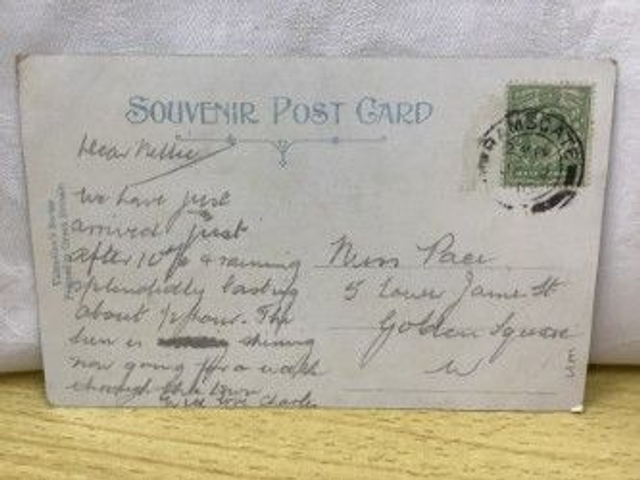 SOUVENIR POST CARD
RAMSGATE
Dear Nellie
We have just
arrived just
after 10 & raining
splendidly lasting
about ½ hour. The
sun is shining
now going for a walk
through the town
with love Charles
Miss Pace
5 Lower James St
Golden Square
W